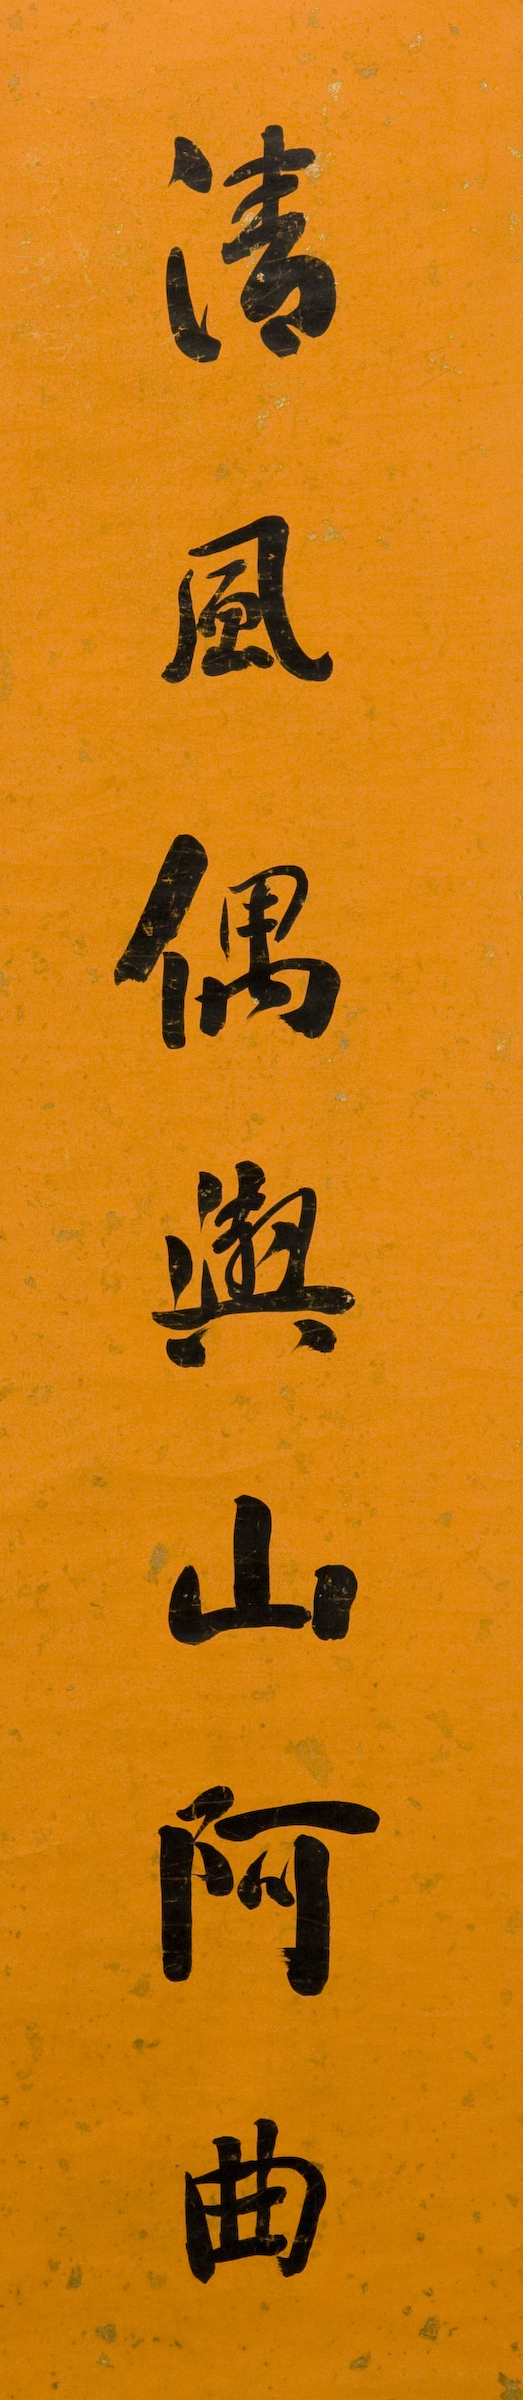 清風偶與山阿曲